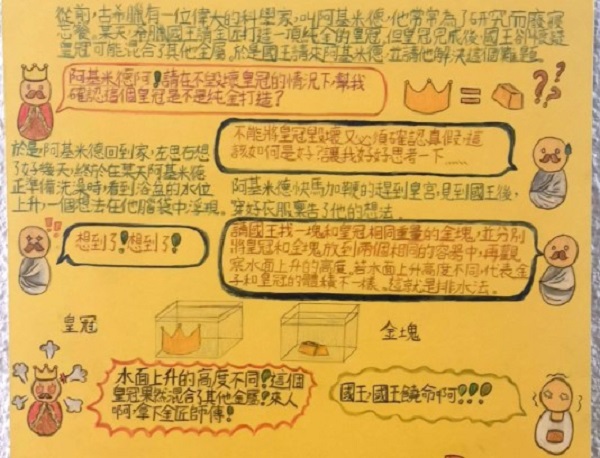 從前,古希臘有一位偉大的科學家,叫阿基米德,他常常為了研究而廢寢
忘餐。某天,希臘國王請金匠打造一項純金的皇冠,但皇冠完成後,國王卻懷疑
皇冠可能混合了其他金屬。於是國王請來阿基米德,並請他解決這個難題。
阿基米德阿!請在不毀壞皇冠的情況下,幫我
確認這個皇冠是不是純金打造?
= ???
不能將皇冠毀壞又必須確認真假,這
該如何是好?讓我好好思考一下......
於是,阿基米德回到家,左思右想
了好幾天,終於在某天阿基米德
正準備洗澡時,看到浴缸的水位
上升,一個想法在他腦袋中浮現。
阿基米德快馬加鞭的趕到皇宮,見到國王後,
穿好衣服稟告了他的想法。
!!
想到了!想到了!
請國王找一塊和皇冠相同重量的金塊,並分別
將皇冠和金塊放到兩個相同的容器中,再觀
察水面上升的高度。若水面上升高度不同,代表金
子和皇冠的體積不一樣。這就是排水法。
皇冠
金塊
水面上升的高度不同!這個
皇冠果然混合了其他金屬!來人
啊,拿下金匠師傅!
國王,國王饒命阿!!!